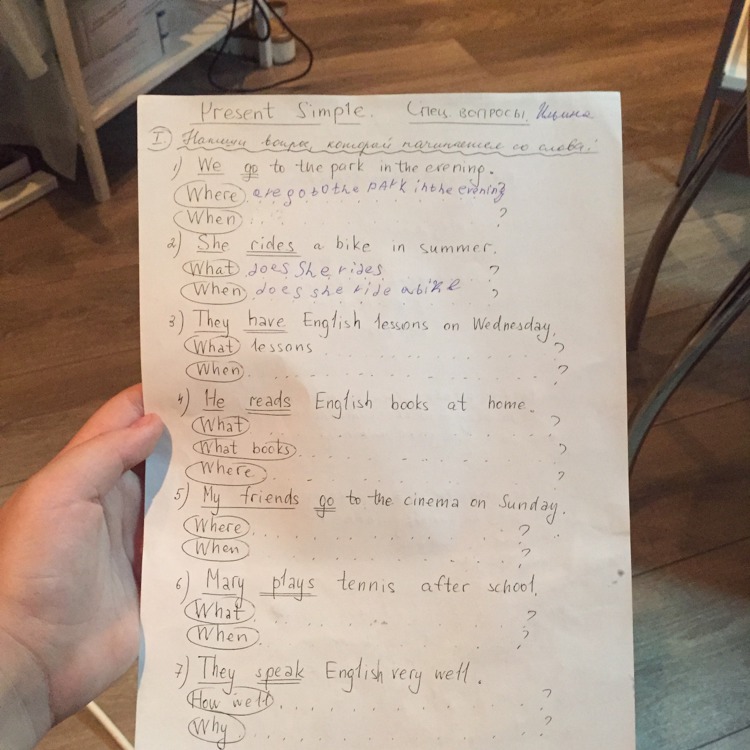 Present Simple. Спец. вопросы.
I Напиши вопрос, который начинается со слова:
1) We go to the park in the evening.
Where are go to the park in the evening?
When ?
2) She rides a bike in summer.
What does she rides ?
When does she ride a bike ?
3) They have English lessons on Wednesday.
What lessons ?
When ?
4) He reads English books at home.
What ?
What books ?
Where ?
5) My friends go to the cinema on Sunday.
Where ?
When ?
6) Mary plays tennis after school.
What ?
When ?
7) They speak English very well.
How well ?
Why ?